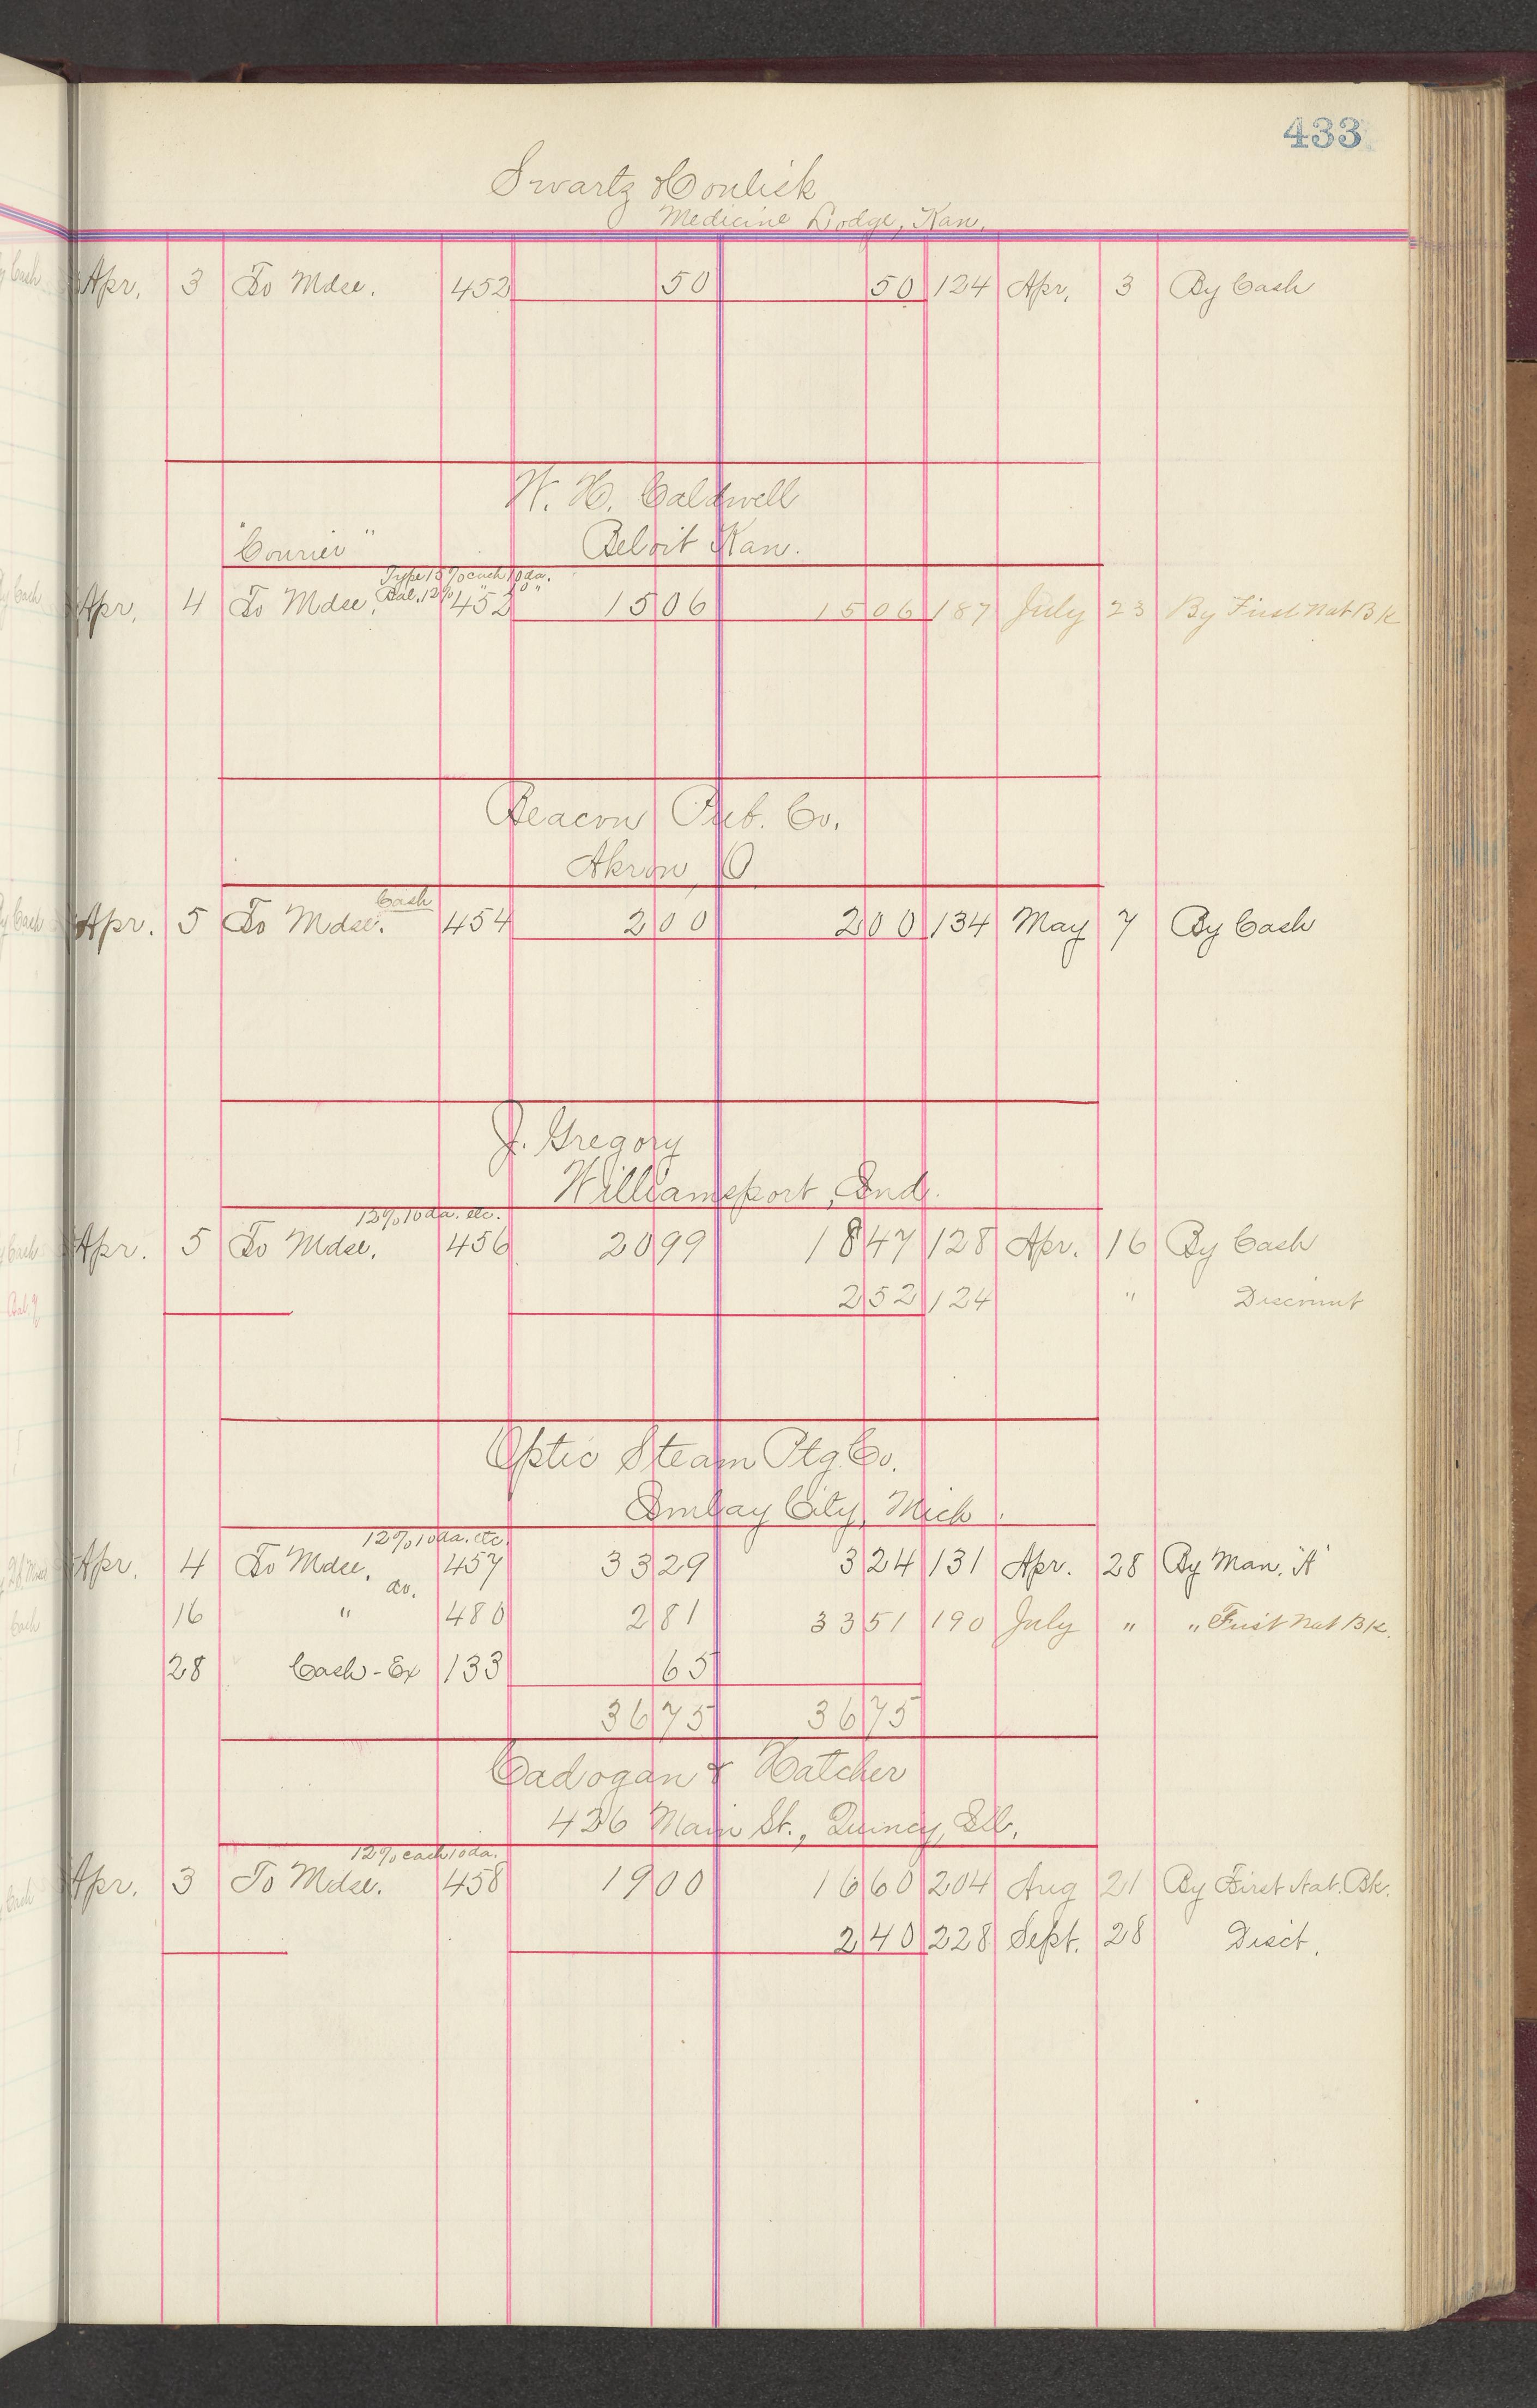 433
Swartz
Medicine Lodge, Kan.
Apr. 3 To Mdse. 452 50 50 124 Apr. 3 By Cash
W. H. Caldwell
"Courier" Beloit Kan.
Type 15% each 10 da.
Bal. 12% " 10 "
Apr. 4 To Mdse. 452 15 06 15 06 187 July 23 By First Nat Bk
Beacon Pub. Co.
Akron, O
Cash
Apr. 5 To Mdse. 454 2 00 2 00 134 May 7 By Cash
J. Gregory
Williamsport, Ind.
12% 10 da. etc.
Apr. 5 To Mdse. 456 20 99 18 47 128 Apr. 16 By Cash
2 52 124 " Discount
Optic Steam Ptg. Co.
Imlay City, Mich.
12% 10 da. etc.
Apr. 4 To Mdse. 457 33 29 3 24 131 Apr. 28 By Man. "A"
do.
16 " 480 2 81 33 51 190 July " " First Nat Bk.
28 Cash - Ex 133 65
36 75 36 75
Cadogan & Hatcher
426 Main St., Quincy, Ill.
12% each 10 da.
Apr. 3 To Mdse. 458 19 00 16 60 204 Aug 21 By First Nat. Bk.
2 40 228 Sept. 28 Disct.